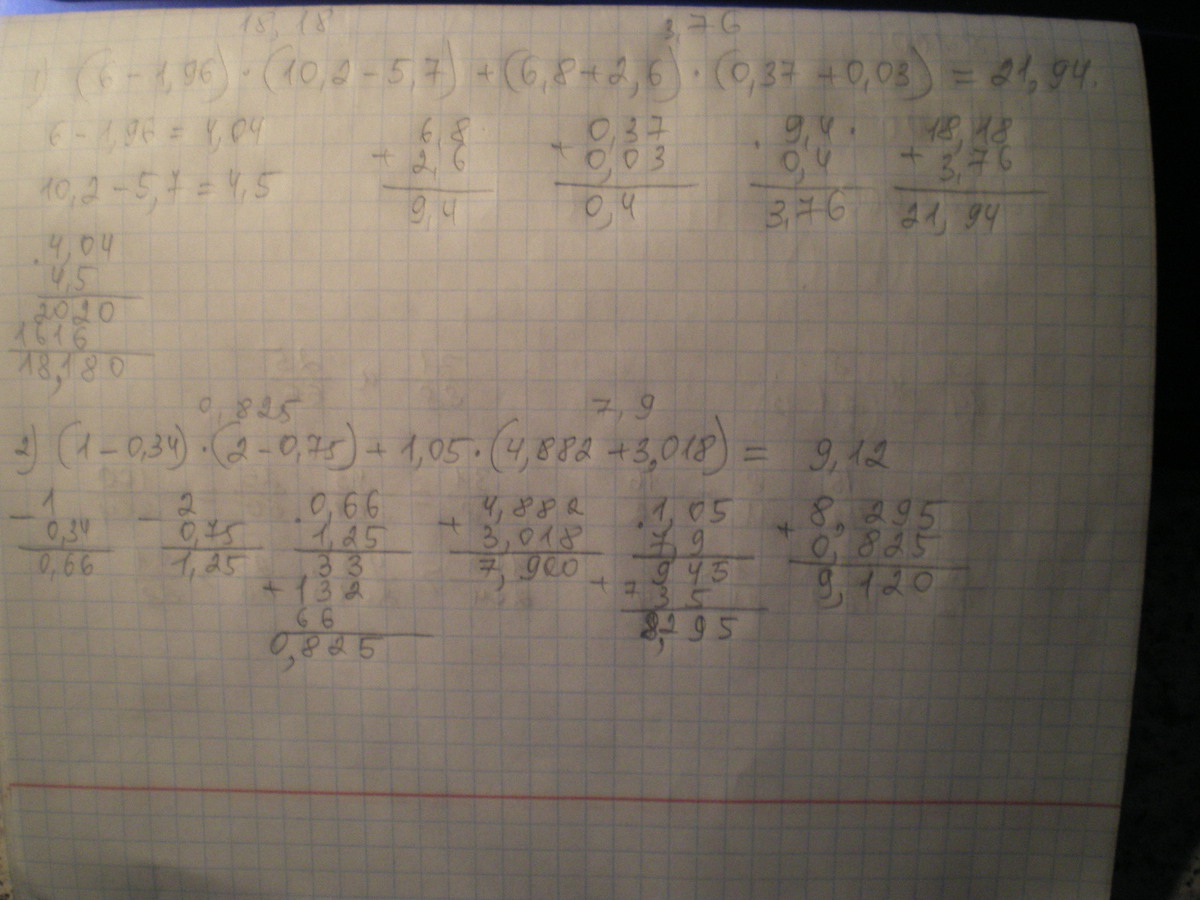 18,18 3,76
1) (6-1,96)·(10,2-5,7)+(6,8+2,6)·(0,37+0,03)=21,94.
6-1,96=4,04
10,2-5,7=4,5
6,8
+ 2,6
9,4
0,37
+ 0,03
0,4
· 9,4·
0,4
3,76
18,18
+ 3,76
21,94
· 4,04
4,5
2020
1616
18,180
0,825 7,9
2) (1-0,34)·(2-0,75)+1,05·(4,882+3,018)= 9,12
- 1
0,34
0,66
- 2
0,75
1,25
· 0,66
1,25
33
+ 132
66
0,825
+ 4,882
3,018
7,900
· 1,05
7,9
945
+ 735
8,295
+ 8,295
0,825
9,120